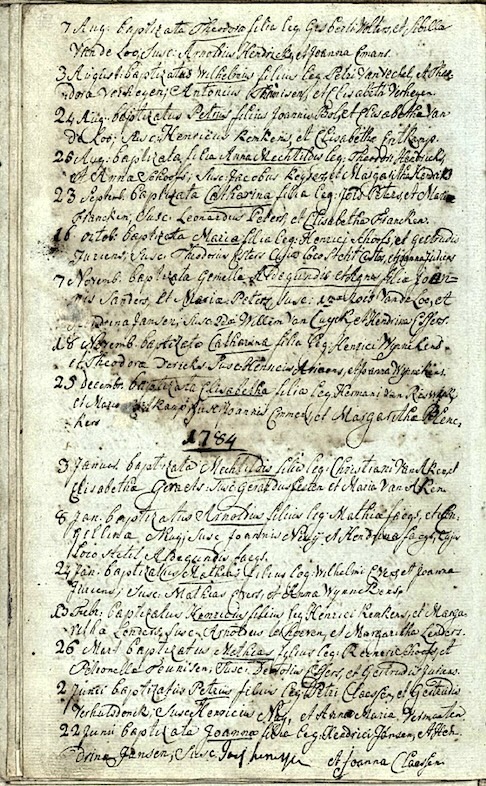 7 Aug: baptizata Theodora filia leg: Gisberti Wolters, et Sibilla
Van de Loo; Susc: Arnoldus Hendricks, et Joanna Emans.
3 August: baptizatus Wilhelmus filius leg: Petri Van Vechel, et Theo
dora Verheyen; Antonius Theunisen, et Elisabetha Verheyen
24 Aug: baptizatus Petrus filius Joannis Bols, et Elisabetha Van
de Loo; Susc: Henricus Kenkens, et Elisabetha
26 Aug: baptizata filia Anna Mechtildis leg: Theodori Hendricks,
et Anna Schoofs; Susc: Jacobus Keysers, et Margaritha Hendricks
23 Septemb: baptizata Catharina filia leg: Joïs Peters, et Maria
Francken, Susc: Leonardus Peters, et Elisabetha Francken.
16 octob: baptizata Maria filia leg: Henrici Schoofs, et Gertrudis
Juriens; Susc: Theodorus Esters Cujus loco stetit et Joanna Jurriens
7 Novemb: baptizata Gemella Aldegundis et Agnes filia Joan-
nis Sanders, et Maria Peters Susc: loco Van de Loo, et
Hendrina Jansen; Susc: 2dæ Willem van Cuyck, et Hendrina Effers.
18 Novemb: baptizata Catharina filia leg: Henrici Wynnekens
et Theodora Dericks Susc: Henricus Ariaens, et Joanna Wynekens.
25 Decembr: baptizata Elisabetha filia leg: Hermani van
et Maria Susc: Joannis Emmers, et Margaretha
kers
1784
3 Januar: baptizata Mechtildis filia leg: Christiani Van Aken, et
Elisabetha Geraets: Susc: Gerardus Esters et Maria Van Aken.
8 Jan: baptizatus Arnoldus filius leg: Mathiæ Jaegs, et En-
gellina Muys; Susc: Joannis Muys et Hendrina Jaegs, cujus
loco stetit Aldegundis Jaegs.
24 Jan: baptizatus Mathias filius leg: Wilhelmi Evers, et Joanna
Jurriens; Susc: Mathias Evers, et Anna Wynnekens.
13 Febr: baptizatus Henricus filius leg: Henrici Kenkens, et Marga-
ritha Lenders, Susc: Arnoldus et Margaritha Lenders.
26 Mert baptizatus Mathias filius leg: Reineri Broek, et
Petronella Teunisen; Susc: Theodorus Effers, et Gertrudis Jurians.
2 Junii baptizatus Petrus filius leg: Petri Claesen, et Gertrudis
Verhulsdonck; Susc: Henricus Nas, et Anna Maria Vermeulen
22 Junii baptizata Joanna filia leg: Hendrici Jansen, et Hen-
drina Jansen; Susc: et Joanna Claessen